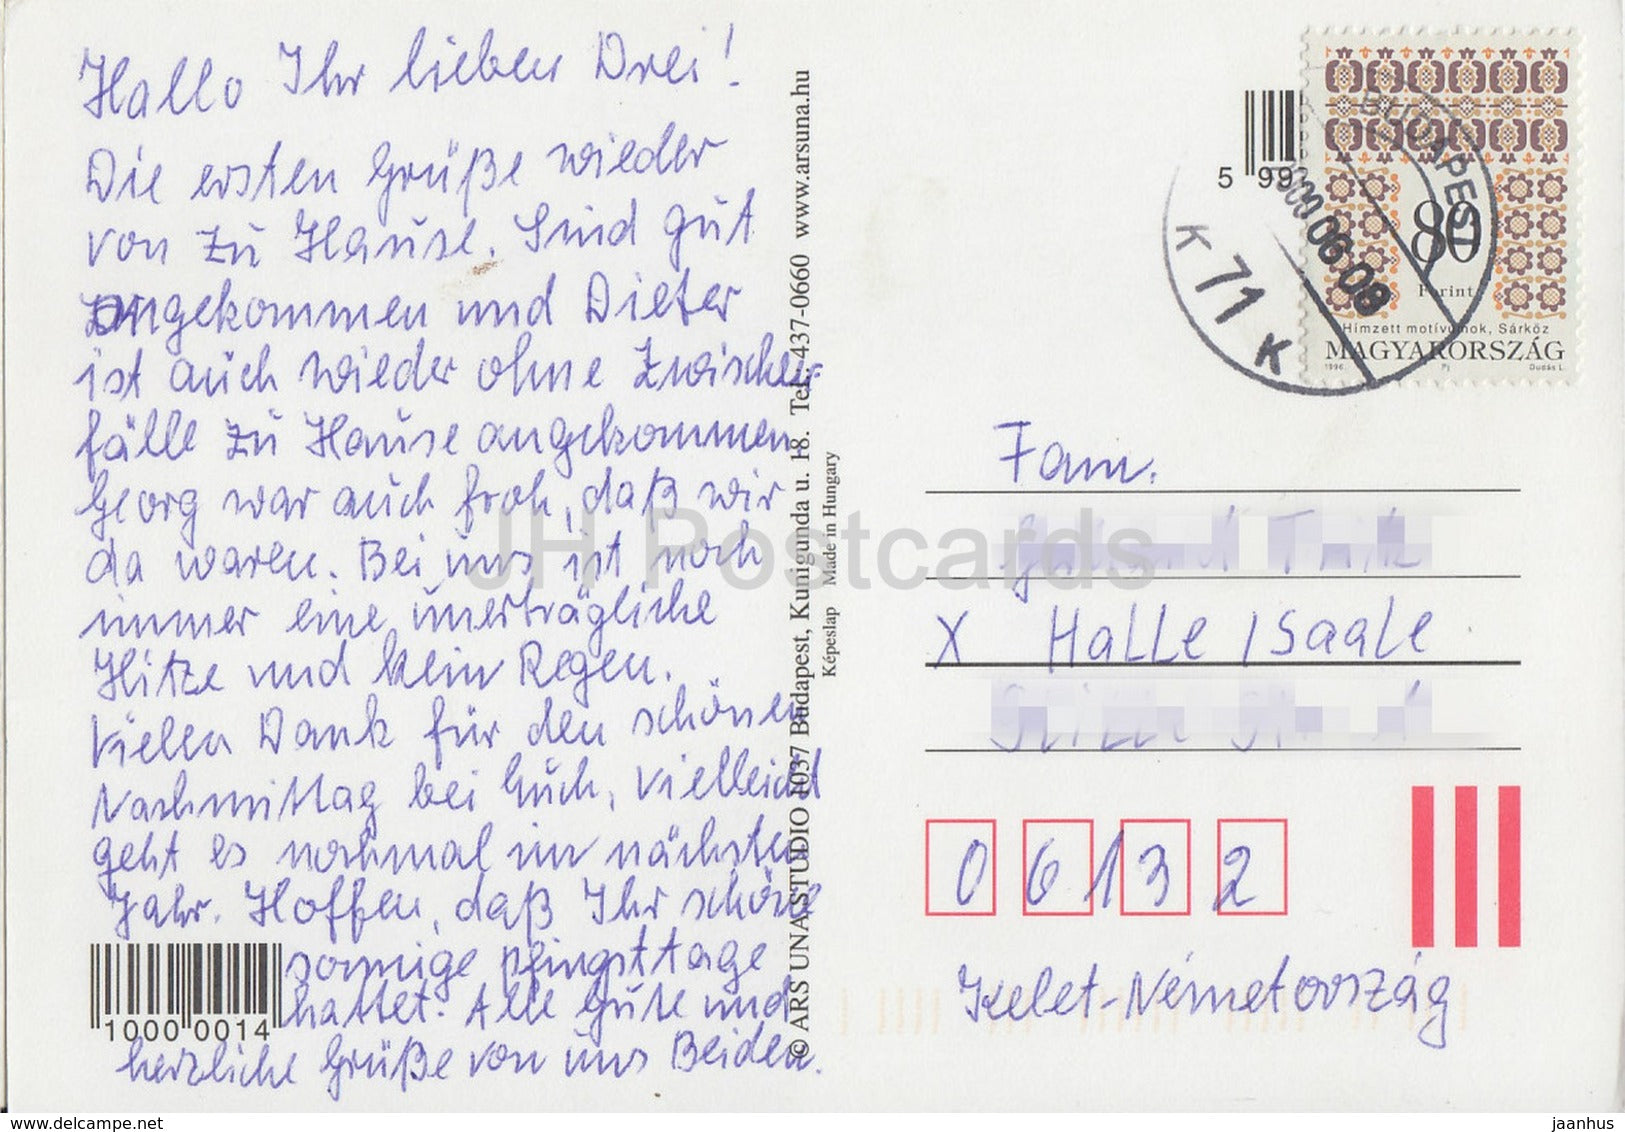 Hallo Ihr lieben Drei!
Die ersten Grüße wieder
von zu Hause. Sind gut
angekommen und Dieter
ist auch wieder ohne Zwischen-
fälle zu Hause angekommen
Georg war auch froh, daß wir
da waren. Bei uns ist noch
immer eine unerträgliche
Hitze und kein Regen.
Vielen Dank für den schönen
Nachmittag bei Euch, vielleicht
geht es nochmal im nächsten
Jahr. Hoffen, daß Ihr schöne
sonnige Pfingsttage
hattet. Alle Gute und
herzliche Grüße von uns Beiden.
1000 0014
© ARS UNA STUDIO 1037 Budapest, Kunigunda u. 18. Tel.: 437-0660 www.arsuna.hu
Képeslap Made in Hungary
5 99
BUDAPEST
000 06 08
K 71 K
80
Forint
Hímzett motívumok, Sárköz
MAGYARORSZÁG
1996. Pj Dudás L.
Fam.
X Halle /Saale
06132
Kelet-Németország
JH Postcards
www.delcampe.net
jaanhus